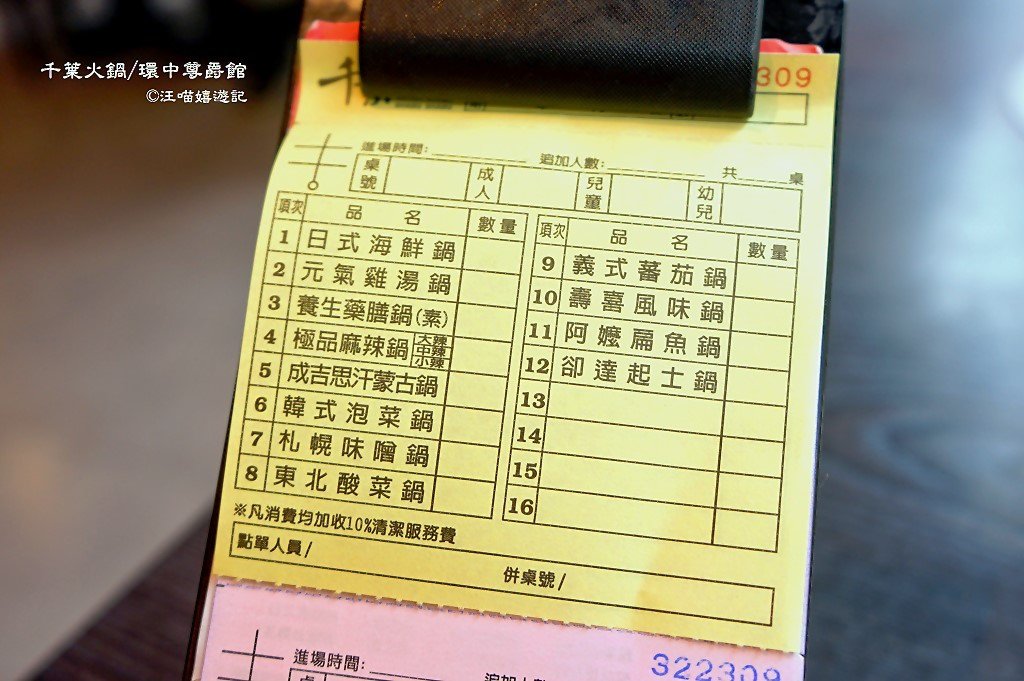 千葉火鍋/環中尊爵館
©汪喵嬉遊記
千
309
進場時間: 追加人數: 共 桌
桌號 成人 兒童 幼兒
項次 品名 數量
1 日式海鮮鍋
2 元氣雞湯鍋
3 養生藥膳鍋(素)
4 極品麻辣鍋 大辣 中辣 小辣
5 成吉思汗蒙古鍋
6 韓式泡菜鍋
7 札幌味噌鍋
8 東北酸菜鍋
項次 品名 數量
9 義式蕃茄鍋
10 壽喜風味鍋
11 阿嬤扁魚鍋
12 卻達起士鍋
13
14
15
16
※凡消費均加收10%清潔服務費
點單人員/ 併桌號/
322309
進場時間:
追加人數
桌